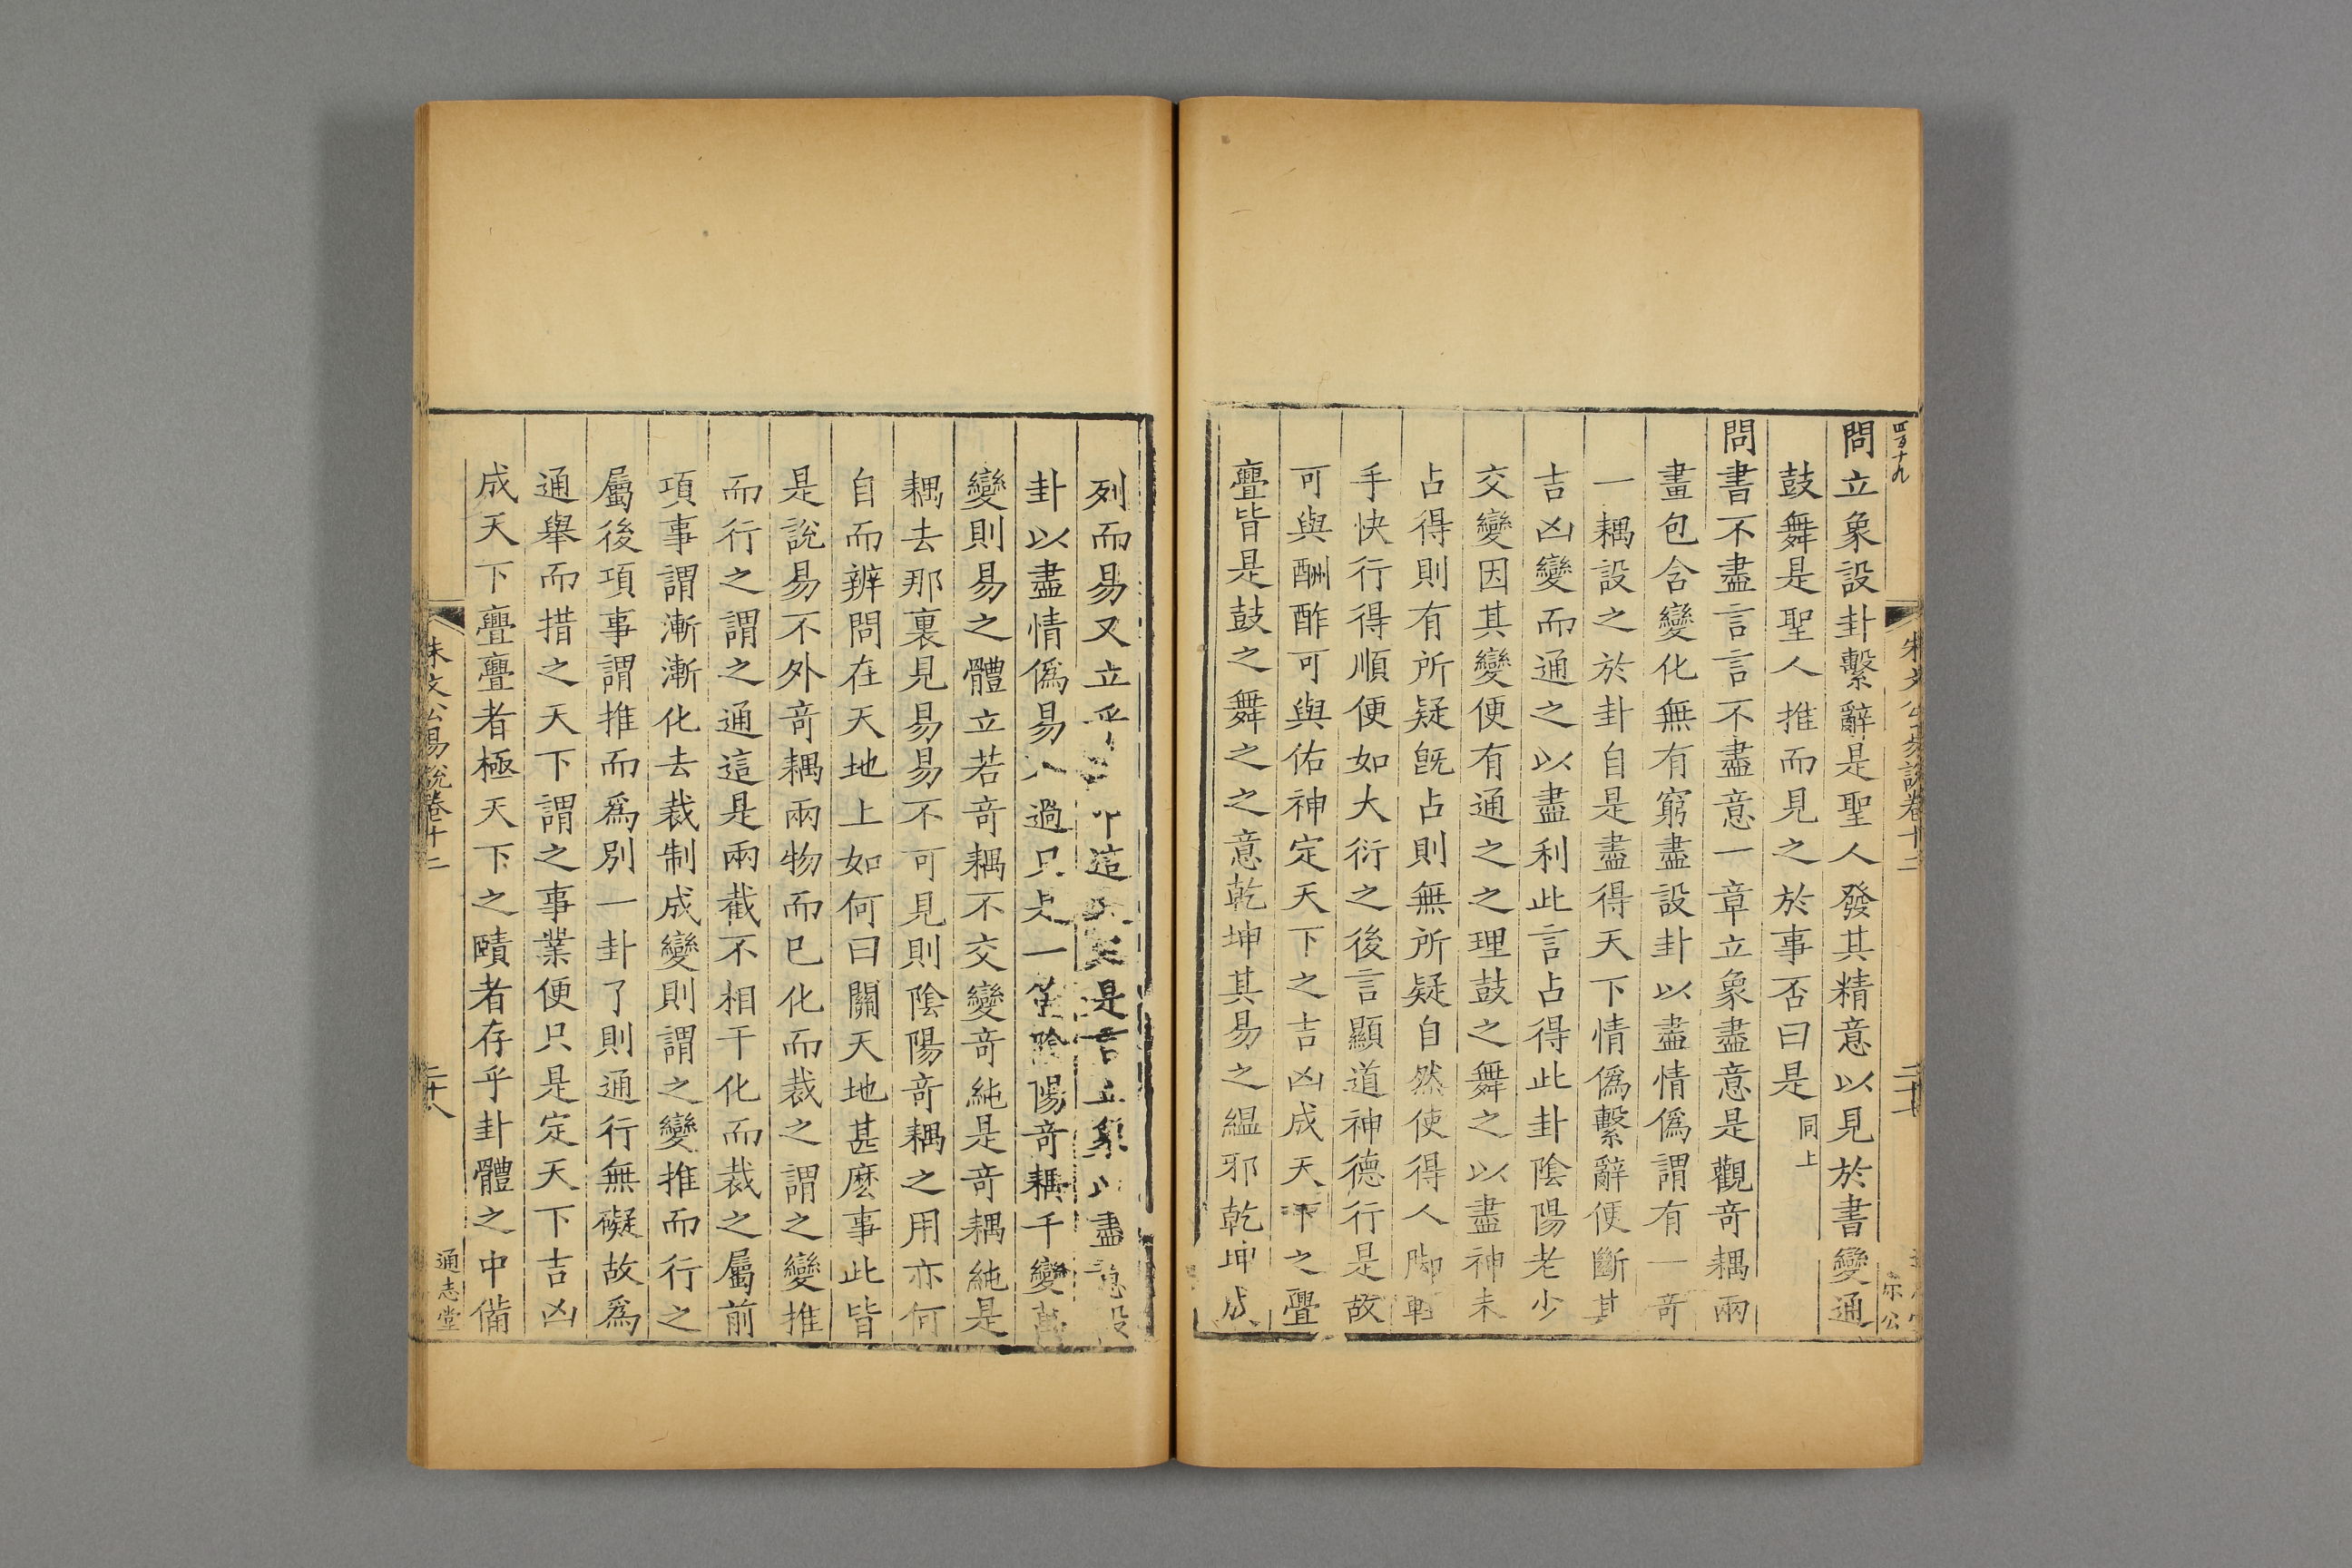 四百十九
問立象設卦繫辭是聖人發其精意以見於書變通
鼓舞是聖人推而見之於事否曰是同上
問書不盡言言不盡意一章立象盡意是觀奇耦兩
畫包含變化無有窮盡設卦以盡情僞謂有一奇
一耦設之於卦自是盡得天下情僞繫辭便斷其
吉凶變而通之以盡利此言占得此卦陰陽老少
交變因其變便有通之之理鼓之舞之以盡神未
占得則有所疑旣占則無所疑自然使得人脚輕
手快行得順便如大衍之後言顯道神德行是故
可與酬酢可與佑神定天下之吉凶成天下之亹
亹皆是鼓之舞之之意乾坤其易之緼邪乾坤成
朱文公易說卷十二
二十
宗公
列而易又立乎 這 是言立象以盡意設
卦以盡情僞易 過只是一箇陰陽奇耦千變萬
變則易之體立若奇耦不交變奇純是奇耦純是
耦去那裏見易易不可見則陰陽奇耦之用亦何
自而辨問在天地上如何曰關天地甚麽事此皆
是說易不外奇耦兩物而已化而裁之謂之變推
而行之謂之通這是兩截不相干化而裁之屬前
項事謂漸漸化去裁制成變則謂之變推而行之
屬後項事謂推而爲別一卦了則通行無礙故爲
通舉而措之天下謂之事業便只是定天下吉凶
成天下亹亹者極天下之賾者存乎卦體之中備
朱文公易說卷十二
二十八
通志堂